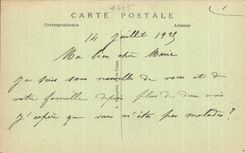 1925
1
CARTE POSTALE
Correspondance
Adresse
14 Juillet 1925
Ma bien chère Marie
Je suis sans nouvelle de vous et de
votre famille depuis plus de deux mois
j'espère que vous n'êtes pas malades ?